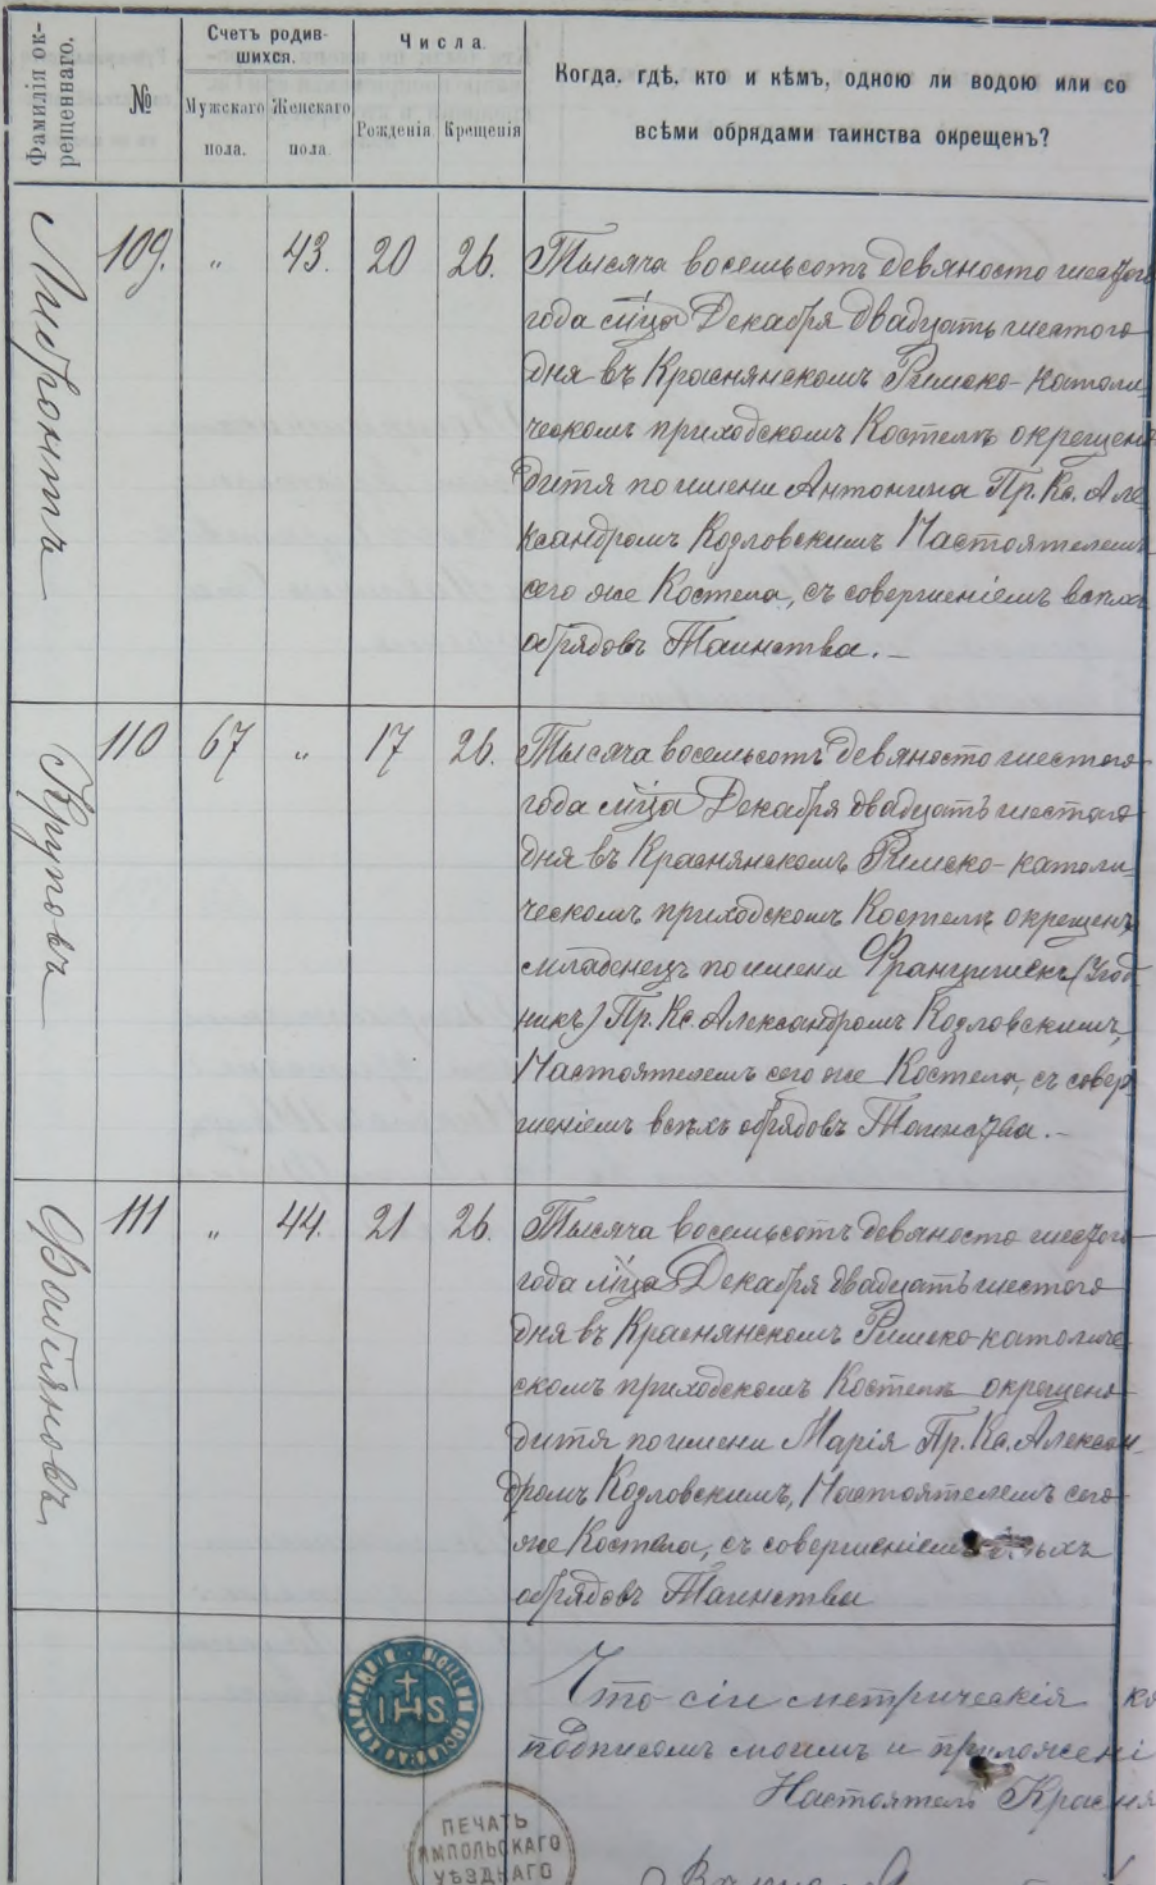 Фамилія ок-
рещеннаго.
№
Счетъ родив-
шихся.
Мужскаго
пола.
Женскаго
пола
Числа.
Рожденія
Крещенія
Когда, гдѣ, кто и кѣмъ, одною ли водою или со
всѣми обрядами таинства окрещенъ?
109. " 43. 20 26.
Тысяча восемьсотъ девяносто шестого
года мѣца Декабря двадцать шестого
дня въ Краснянскомъ Римско-католи-
ческомъ приходскомъ Костелѣ окрещено
дитя по имени Антонина Пр. Кс. Але-
ксандромъ Козловскимъ Настоятелемъ
сего же Костела, съ совершеніемъ всѣхъ
обрядовъ Таинства.-
Круповъ
110 67 " 17 26.
Тысяча восемьсотъ девяносто шестого
года мѣца Декабря двадцать шестого
дня въ Краснянскомъ Римско-католи-
ческомъ приходскомъ Костелѣ окрещенъ
младенецъ по имени Францишекъ (Угод-
никъ) Пр. Кс. Александромъ Козловскимъ,
Настоятелемъ сего же Костела, съ совер-
шеніемъ всѣхъ обрядовъ Таинства.-
111 " 44. 21 26.
Тысяча восемьсотъ девяносто шестого
года мѣца Декабря двадцать шестого
дня въ Краснянскомъ Римско-католиче-
скомъ приходскомъ Костелѣ окрещено
дитя по имени Марія Пр. Кс. Алексан-
дромъ Козловскимъ, Настоятелемъ сего
же Костела, съ совершеніемъ всѣхъ
обрядовъ Таинства
IHS
Что сіи метрическія
подписомъ моимъ и приложені
Настоятель Красня
ПЕЧАТЬ
ЯМПОЛЬСКАГО
УѢЗДНАГО